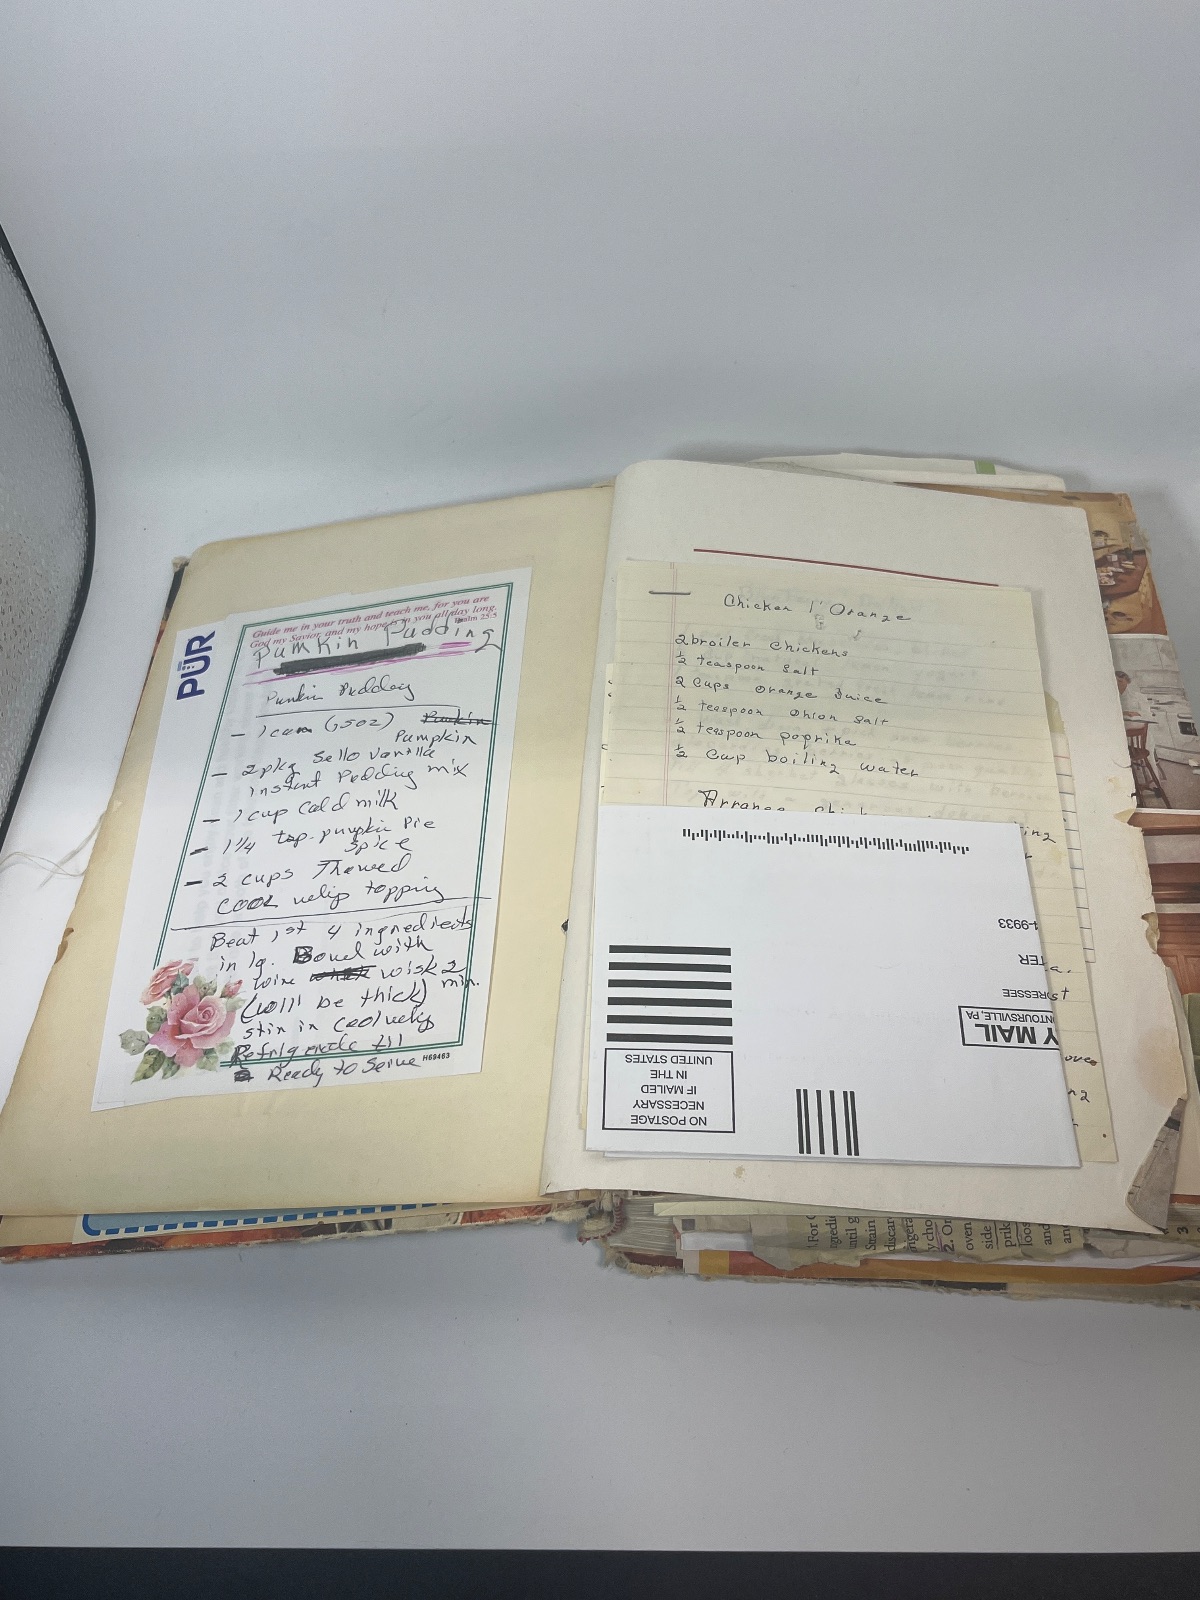 PÜR
Guide me in your truth and teach me, for you are
God my Savior, and my hope is in you all day long.
Psalm 25:5
Pumkin Pudding
Punkin Pudding
- 1 can (15oz) Pumkin
Pumpkin
- 2 pkg Jello Vanilla
instant Pudding mix
- 1 cup cold milk
- 1 1/4 tsp. pumpkin Pie
Spice
- 2 cups Thawed
Cool whip topping
Beat 1st 4 ingredients
in lg. Bowl with
wire wisk 2
(will be thick) min.
stir in Cool whip
Refrigerate till
Ready to Serve
H69463
Chicken l'Orange
2 broiler chickens
1/2 teaspoon salt
2 cups orange Juice
1/2 teaspoon onion salt
1/2 teaspoon poprika
1/2 cup boiling water
Arrange
-9933
TER
RESSEE
NTOURSVILLE, PA
Y MAIL
NO POSTAGE
NECESSARY
IF MAILED
IN THE
UNITED STATES
For
until
Strain
discar
y cho
2. Or
oven
side
loos
and
3